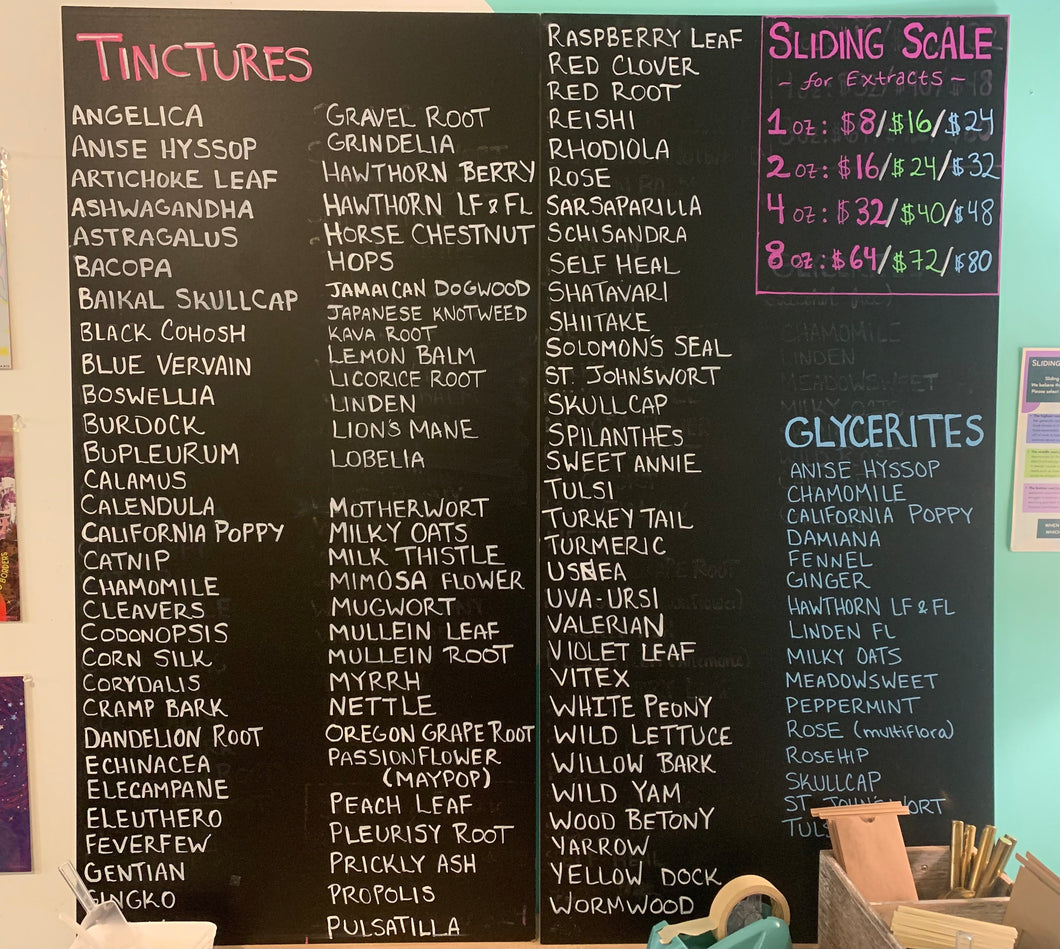 TINCTURES
ANGELICA
ANISE HYSSOP
ARTICHOKE LEAF
ASHWAGANDHA
ASTRAGALUS
BACOPA
BAIKAL SKULLCAP
BLACK COHOSH
BLUE VERVAIN
BOSWELLIA
BURDOCK
BUPLEURUM
CALAMUS
CALENDULA
CALIFORNIA POPPY
CATNIP
CHAMOMILE
CLEAVERS
CODONOPSIS
CORN SILK
CORYDALIS
CRAMP BARK
DANDELION ROOT
ECHINACEA
ELECAMPANE
ELEUTHERO
FEVERFEW
GENTIAN
GINGKO
GRAVEL ROOT
GRINDELIA
HAWTHORN BERRY
HAWTHORN LF & FL
HORSE CHESTNUT
HOPS
JAMAICAN DOGWOOD
JAPANESE KNOTWEED
KAVA ROOT
LEMON BALM
LICORICE ROOT
LINDEN
LION'S MANE
LOBELIA
MOTHERWORT
MILKY OATS
MILK THISTLE
MIMOSA FLOWER
MUGWORT
MULLEIN LEAF
MULLEIN ROOT
MYRRH
NETTLE
OREGON GRAPE ROOT
PASSIONFLOWER
(MAYPOP)
PEACH LEAF
PLEURISY ROOT
PRICKLY ASH
PROPOLIS
PULSATILLA
RASPBERRY LEAF
RED CLOVER
RED ROOT
REISHI
RHODIOLA
ROSE
SARSAPARILLA
SCHISANDRA
SELF HEAL
SHATAVARI
SHIITAKE
SOLOMON'S SEAL
ST. JOHN'S WORT
SKULLCAP
SPILANTHES
SWEET ANNIE
TULSI
TURKEY TAIL
TURMERIC
USNEA
UVA-URSI
VALERIAN
VIOLET LEAF
VITEX
WHITE PEONY
WILD LETTUCE
WILLOW BARK
WILD YAM
WOOD BETONY
YARROW
YELLOW DOCK
WORMWOOD
SLIDING SCALE
~ for Extracts ~
1 oz: $8/$16/$24
2 oz: $16/$24/$32
4 oz: $32/$40/$48
8 oz: $64/$72/$80
CHAMOMILE
LINDEN
MEADOWSWEET
MILKY OATS
GLYCERITES
ANISE HYSSOP
CHAMOMILE
CALIFORNIA POPPY
DAMIANA
FENNEL
GINGER
HAWTHORN LF & FL
LINDEN FL
MILKY OATS
MEADOWSWEET
PEPPERMINT
ROSE (multiflora)
ROSEHIP
SKULLCAP
ST. JOHN'S WORT
TULS
SLIDING
BORDERS